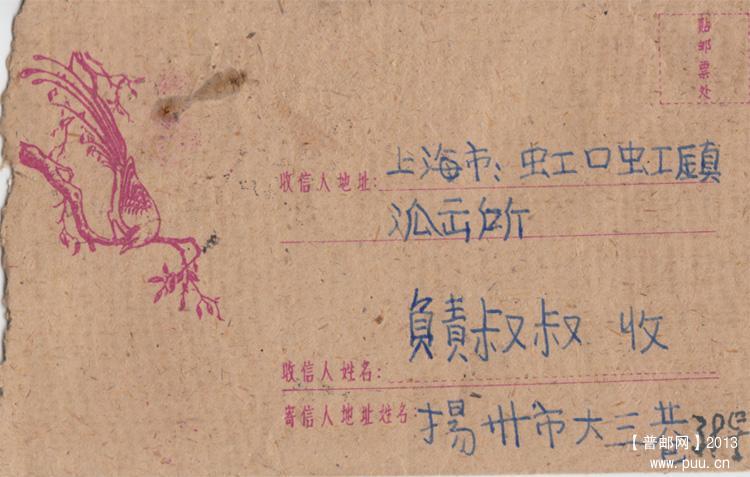 贴邮票处
收信人地址: 上海市: 虹口虹镇
派出所
負責叔叔 收
收信人姓名:
寄信人地址姓名 揚州市大三巷38号
【普邮网】2013
www.puu.cn